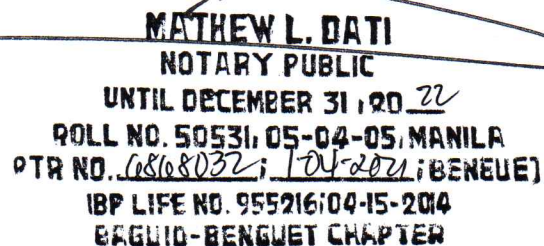 MATHEW L. DATI
NOTARY PUBLIC
UNTIL DECEMBER 31, 20 22
ROLL NO. 50531; 05-04-05; MANILA
PTR NO. 6868032; 1-04-2021; BENGUET
IBP LIFE NO. 955216; 04-15-2014
BAGUIO-BENGUET CHAPTER